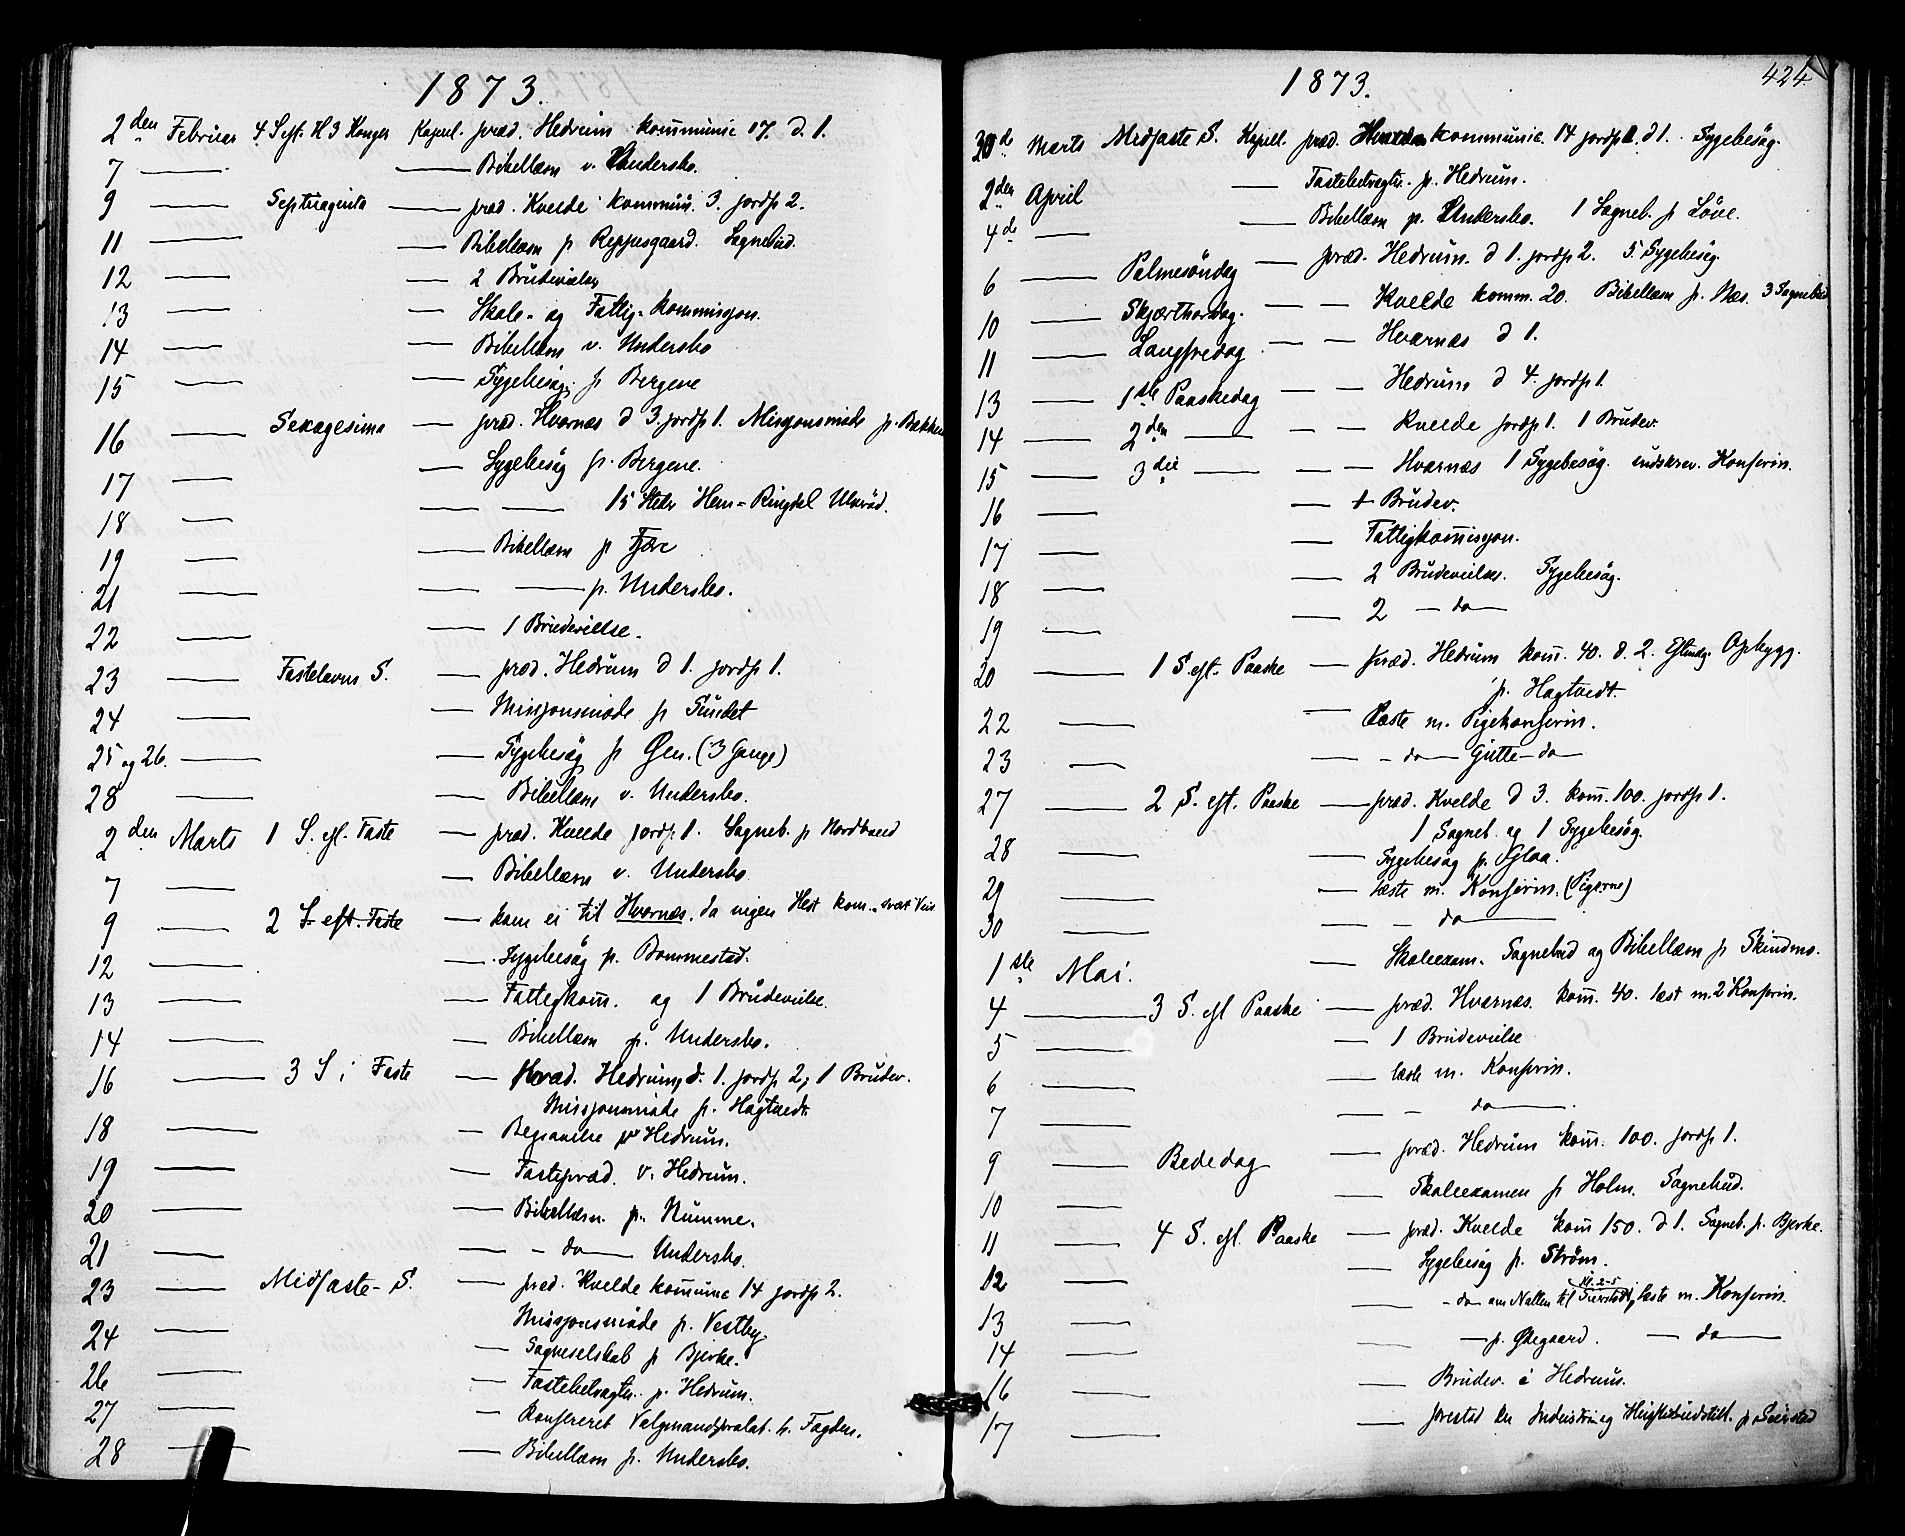 1873.
2den Februar 4 S. eft. H 3 Konger Kapel. præd. Hedrum kommunic 17. d. 1.
7 — — Bibellæsn v. Undersbo.
9 — Septuaginta — præd. Kvelde kommun. 3. jordp 2.
11 — — Bibellæsn p Reppesgaard. Sognebud.
12 — — 2 Brudevielser
13 — — Skole- og Fattig-kommisjon.
14 — — Bibellæsn v. Undersbo
15 — — Sygebesøg p Bergene
16 — Sexagesima — præd. Hvarnes d 3. jordp 1. Missjonsmøde p. Bakken
17 — — Sygebesøg p. Bergene.
18 — — — 15 Steder Hem-Ringdal Ulvrød.
19 — — Bibellæsn p Fjære
21 — — — p. Undersbo.
22 — — 1 Brudevielse.
23 — Fastelavns S. — præd. Hedrum d 1. jordp 1.
24 — — Missjonsmøde p Sundet
25 og 26. — — Sygebesøg p Øen. (3 Gange)
28 — — Bibellæsn v. Undersbo.
2den Marts 1 S. eft. Faste — præd. Kvelde jordp 1. Sogneb. p Nordbrued
7 — — Bibellæsn v. Undersbo
9 — 2 S. eft. Faste — kom ei til Hvarnes, da ingen Hest kom
12 — — Sygebesøg p. Bommestad.
13 — — Fattigkom. og 1 Brudevielse.
14 — — Bibellæsn p. Undersbo.
16 — 3 S. i Faste — Præd. Hedrum, d. 1. jordp 2, 1 Brudev.
Missjonsmøde p. Hagtvedt
18 — — Begravelse p Hedrum.
19 — — Fastepræd. v. Hedrum.
20 — — Bibellæsn. p. Numme.
21 — — - do — Undersbo.
23 — Midfaste-S. — præd. Kvelde kommunic 14 jordp 2.
24 — Missjonsmøde p. Vestby.
26 — — Sogneselskab p Bjerke.
27 — — Fastebetragtn. p. Hedrum.
— Konfereret Valgmandsvalat. h. Fagden.
28 — — Bibellæsn p. Undersbo.
1873.
424
30de Marts Midfaste S. Kapell. præd. Hvarnes kommunic. 14 jordp 1. d 1. Sygebesøg.
2den April — Fastebetragtn. p. Hedrum.
4de — — Bibellæsn p. Undersbo. 1 Sogneb. p Løve.
6 — Palmesøndag — præd. Hedrum. d 1. jordp 2. 5. Sygebesøg.
10 — Skjærthorsdag. — — Kvelde komm. 20. Bibellæsn p. Næs. 3 Sognebud
11 — Langfredag — — Hvarnæs d 1.
13 — 1ste Paaskedag — — Hedrum d 4. jordp 1.
14 — 2den — — — Kvelde jordp 1. 1 Brudev.
15 — 3die — — — Hvarnæs 1 Sygebesøg. indskrev. Konfirm.
16 — — + Brudev.
17 — — Fattigkomisjon.
18 — — 2 Brudevielser. Sygebesøg.
19 — — 2 — do —
20 — 1 S. eft. Paaske — Præd. Hedrum kom. 40. d. 2. Eftmdg. Opbygg.
p. Hagtvedt
22 — — Læste m. Pigekonfirm.
23 — — - do — Gutte - do —
27 — 2 S. eft. Paaske — præd. Kvelde d 3. kom. 100. jordp 1.
1 Sogneb. og 1 Sygebesøg.
28 — — Sygebesøg p. Oglaa.
29 — — læste m. Konfirm. (Pigerne)
30 — — - do —
1ste Mai. — Skoleexam. Sognebud og Bibellæsn p Skindmo.
4 — 3 S. eft Paaske — præd. Hvarnes. kom. 40. læst m. 2 Konfirm.
5 — — 1 Brudevielse
6 — — læste m. Konfirm.
7 — — - do —
9 — Bededag — præd. Hedrum kom. 100. jordp 1.
10 — — Skoleexamen p Holm. Sognebud.
11 — 4 S. eft. Paaske — præd. Kvelde kom 150. d 1. Sogneb. p. Bjerke.
12 — — Sygebesøg p. Strøm.
Kl. 2-5
13 — — - do om Natten til Sierstad, læste m. Konfirm.
14 — — — p. Ødegaard. — do —
16 — — Brudev. i Hedrum.
17 — — forestod den Industri og Husflidsudstill. p Seierstad